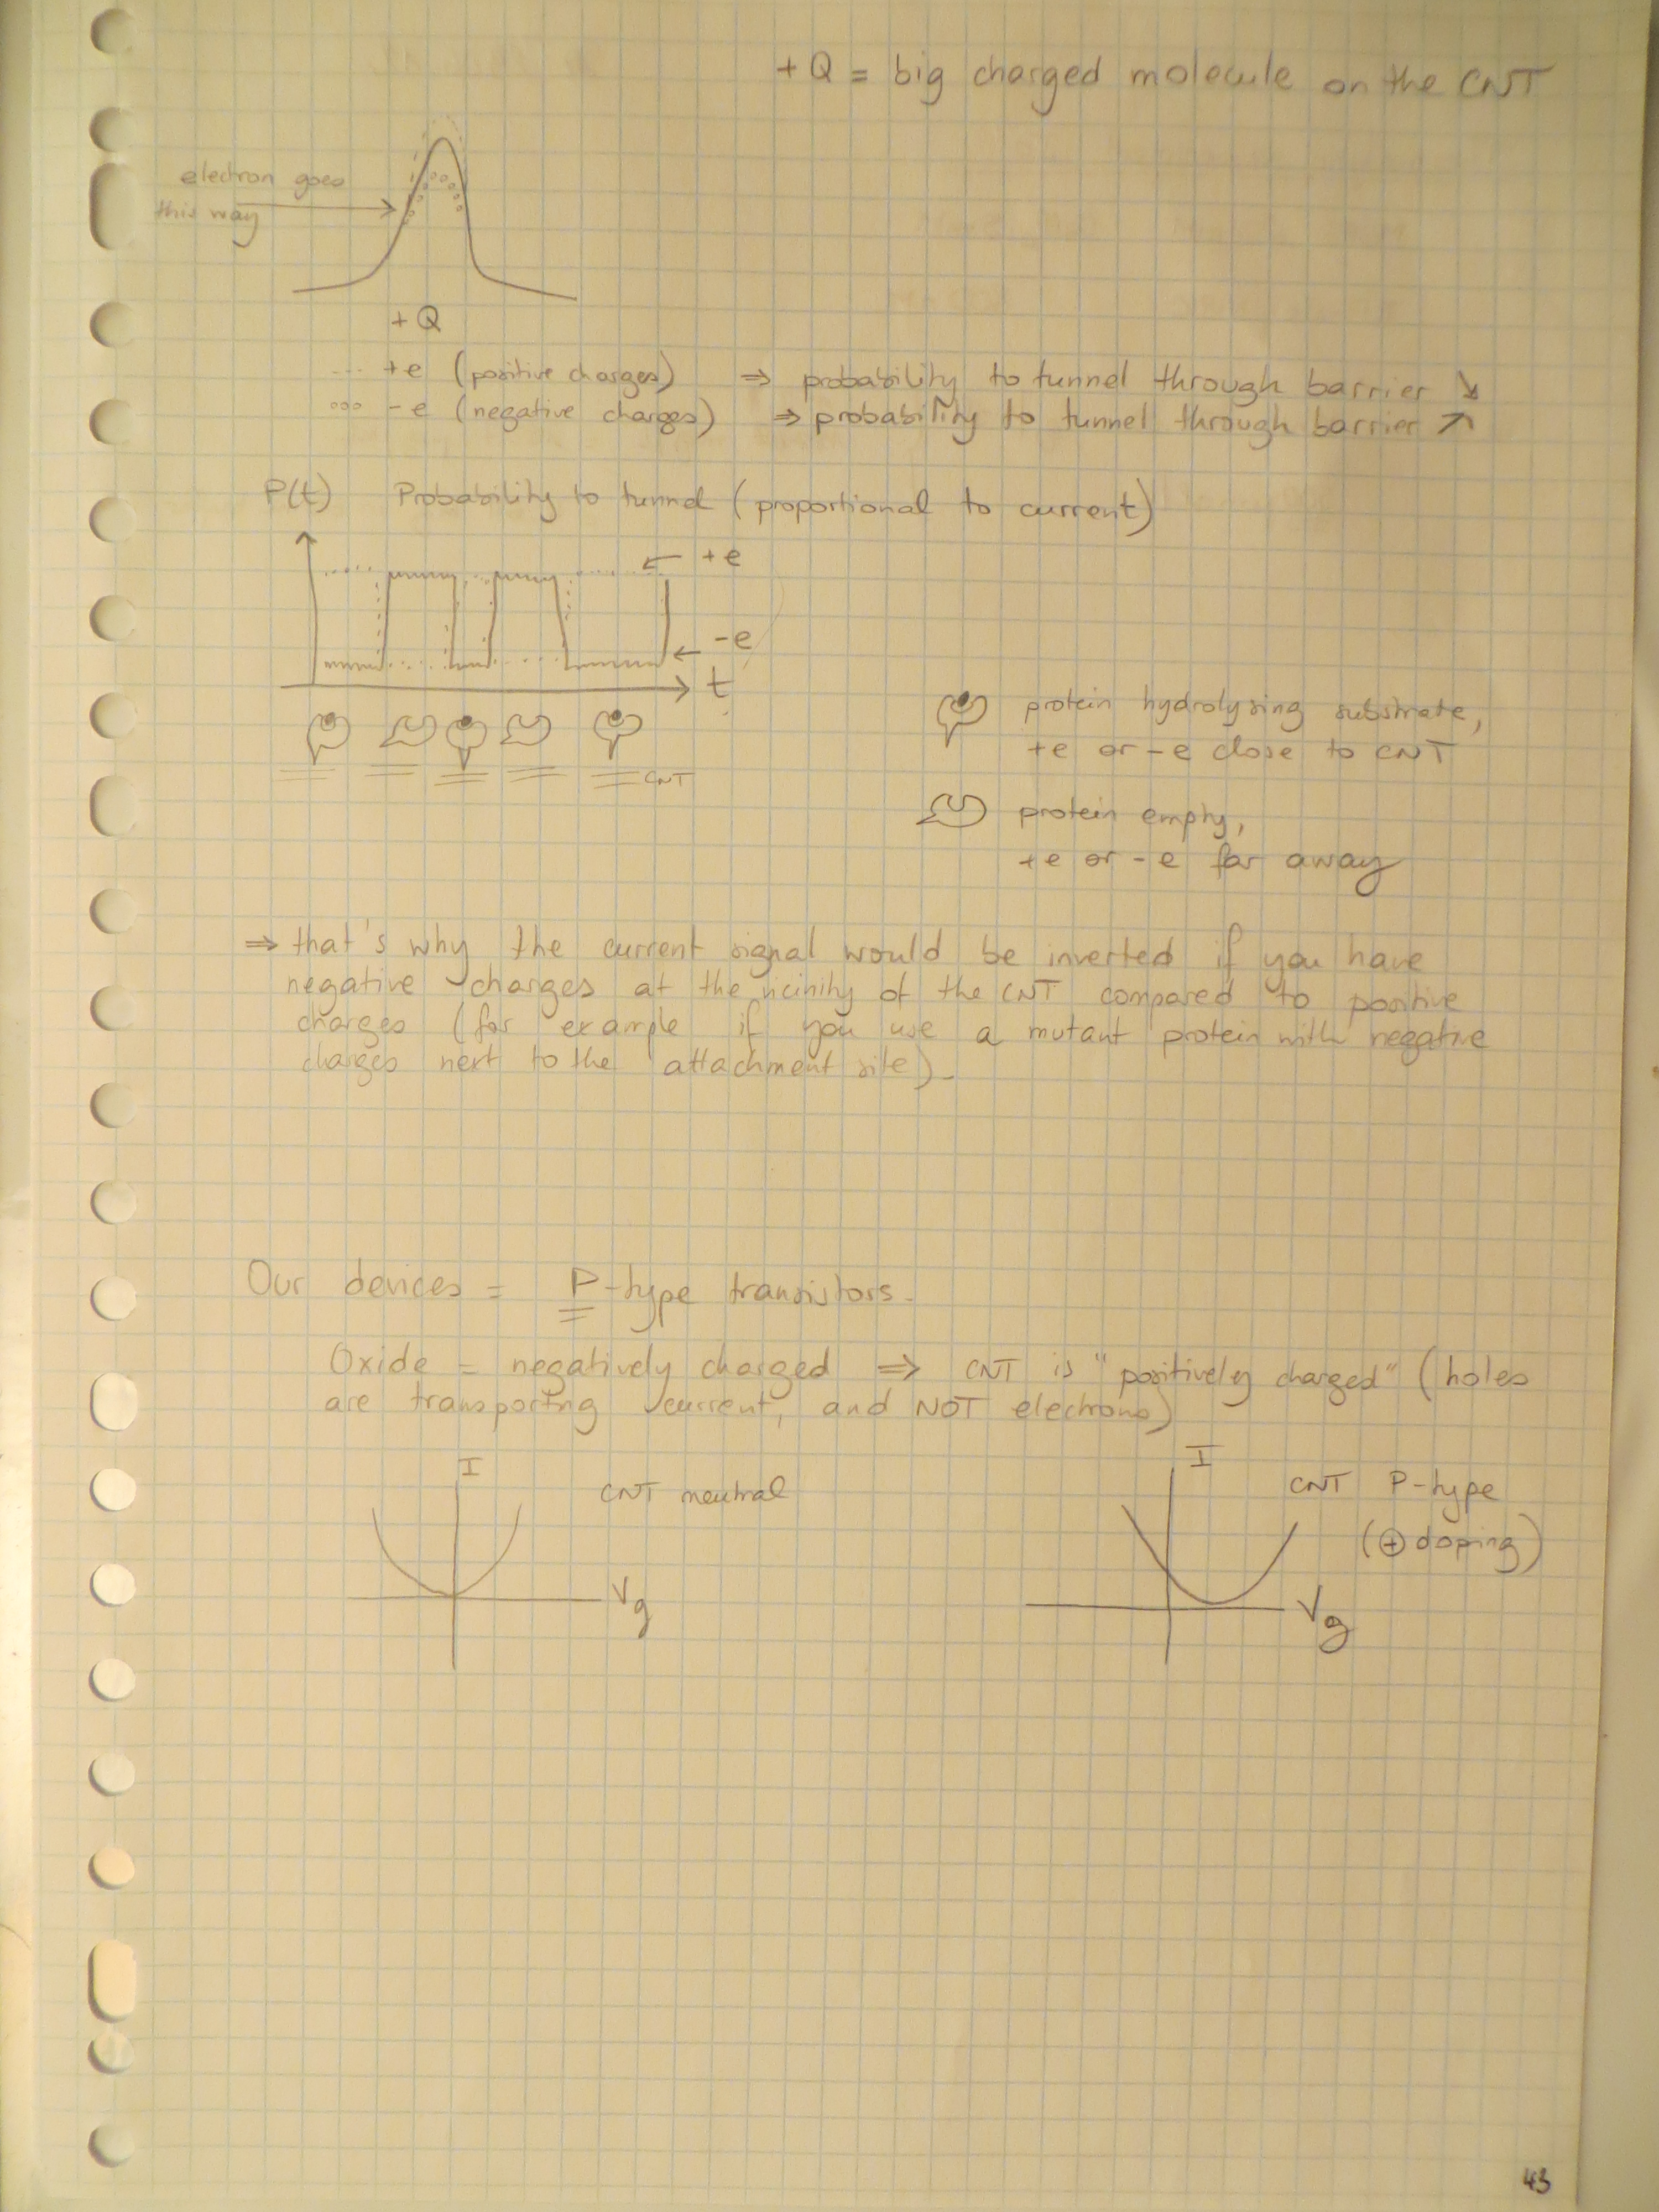 +Q = big charged molecule on the CNT
electron goes
this way
+Q
... +e (positive charges) ⇒ probability to tunnel through barrier ↘
°°° -e (negative charges) ⇒ probability to tunnel through barrier ↗
P(t) Probability to tunnel (proportional to current)
← +e
← -e
t
CNT
protein hydrolysing substrate,
+e or -e close to CNT
protein empty,
+e or -e far away
⇒ that's why the current signal would be inverted if you have
negative charges at the vicinity of the CNT compared to positive
charges (for example if you use a mutant protein with negative
charges next to the attachment site).
Our devices = P-type transistors.
Oxide = negatively charged ⇒ CNT is "positively charged" (holes
are transporting current, and NOT electrons)
I
CNT neutral
Vg
I
CNT P-type
(⊕ doping)
Vg
43